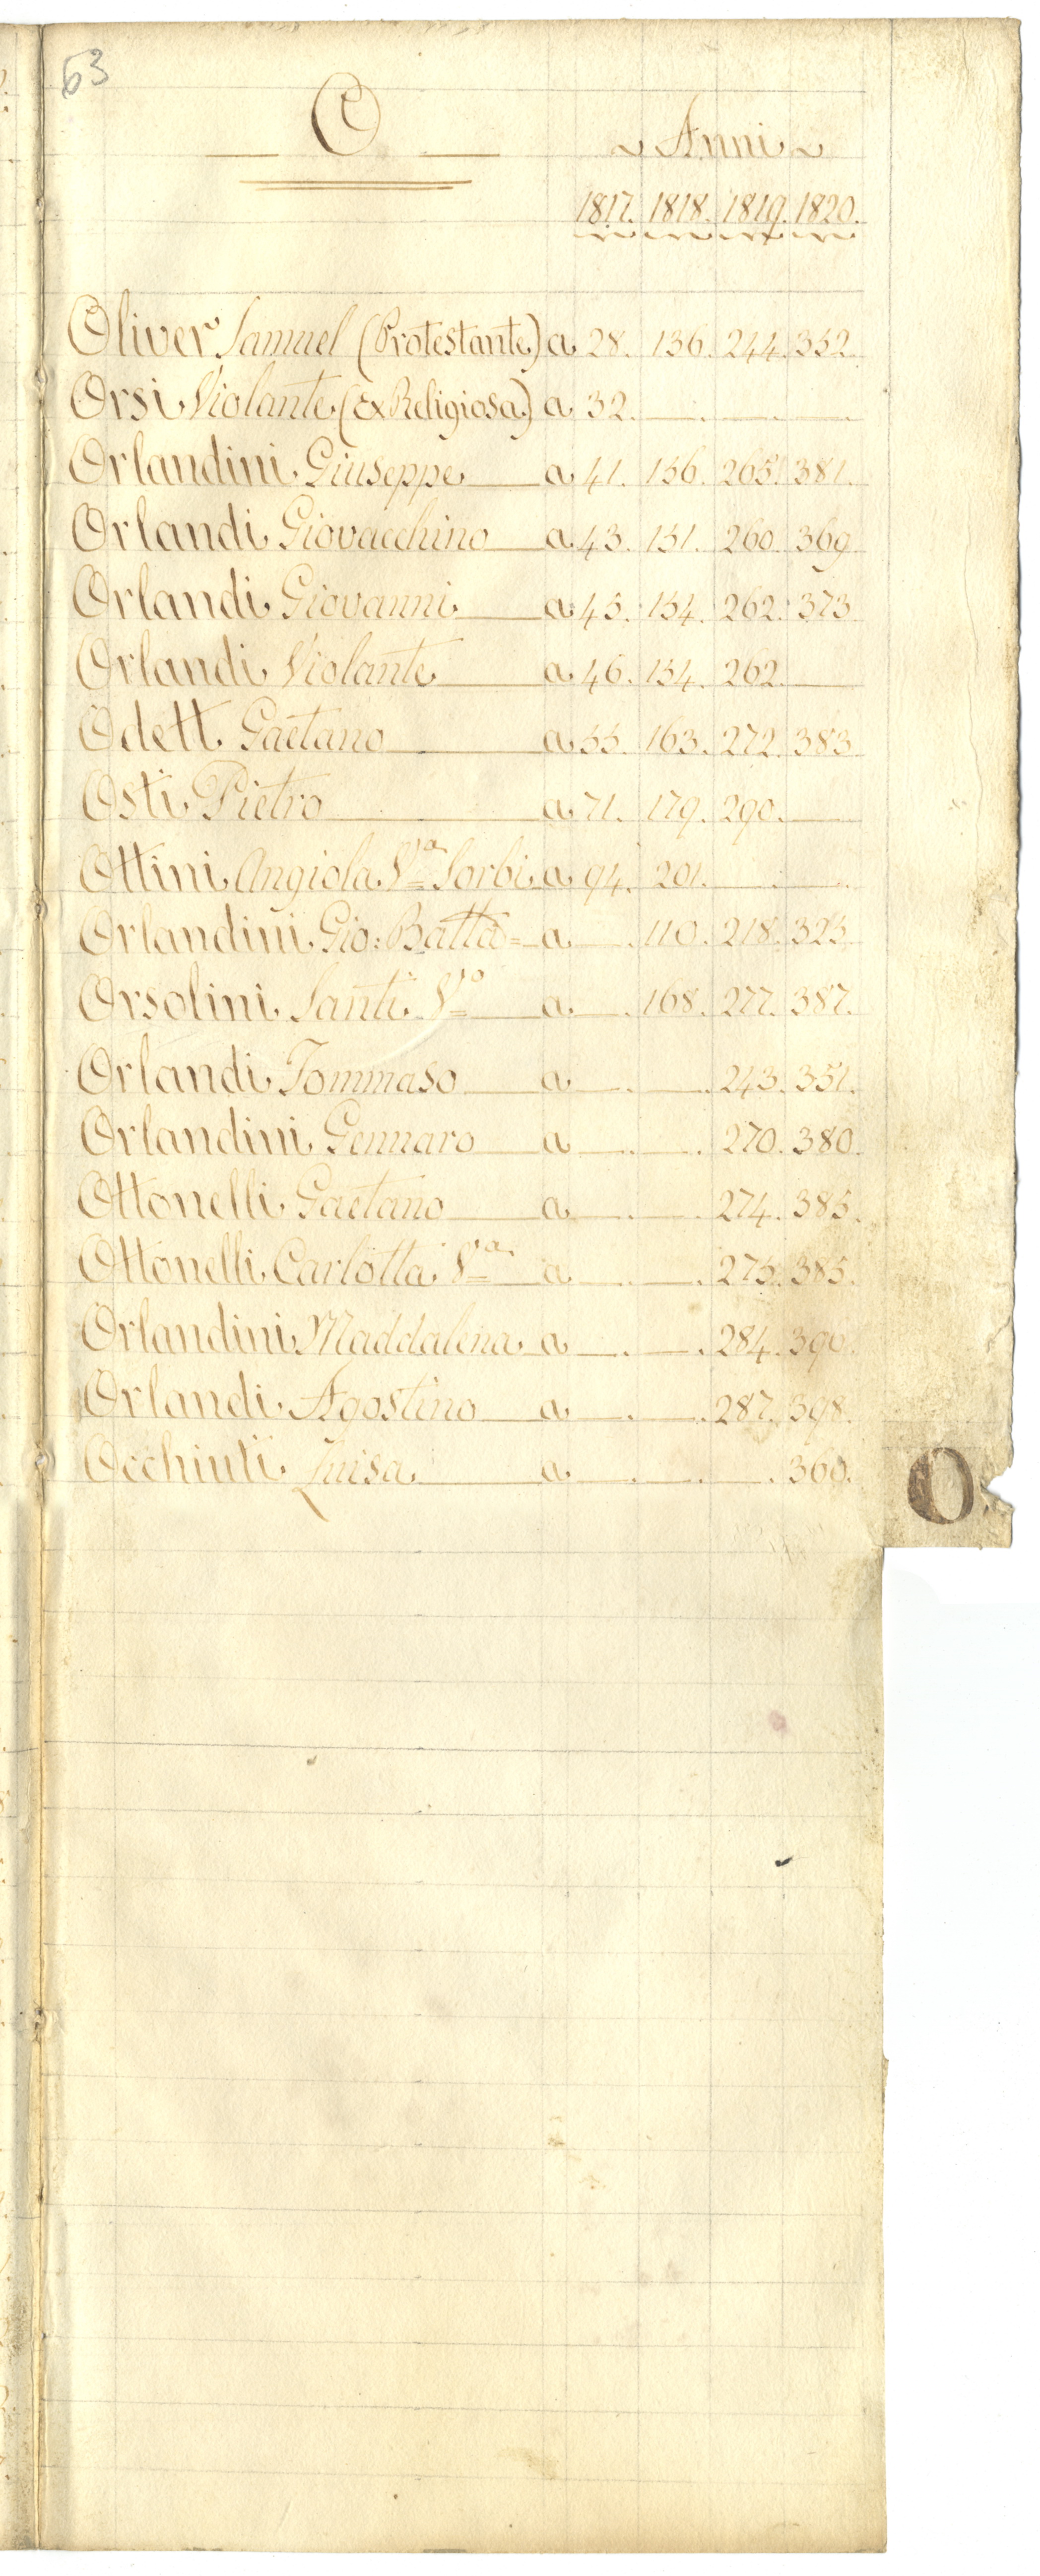 63
O
Anni
1817. 1818. 1819. 1820.
Oliver Samuel (Protestante) a 28. 136. 244. 352.
Orsi Violante (Ex Religiosa) a 32.
Orlandini Giuseppe a 41. 156. 265. 381.
Orlandi Giovacchino a 43. 151. 260. 369
Orlandi Giovanni a 45. 154. 262. 373
Orlandi Violante a 46. 154. 262.
Odett Gaetano a 55. 163. 272. 383.
Osti Pietro a 71. 179. 290.
Ottini Angiola Vª Sorbi a 94. 201.
Orlandini Gio: Batta a 110. 218. 325
Orsolini Santi Vº a 168. 277. 387.
Orlandi Tommaso a 243. 351.
Orlandini Gennaro a 270. 380.
Ottonelli Gaetano a 274. 385.
Ottonelli Carlotta Vª a 275. 385.
Orlandini Maddalena a 284. 390.
Orlandi Agostino a 287. 398.
Occhiuti Luisa a 360.
O